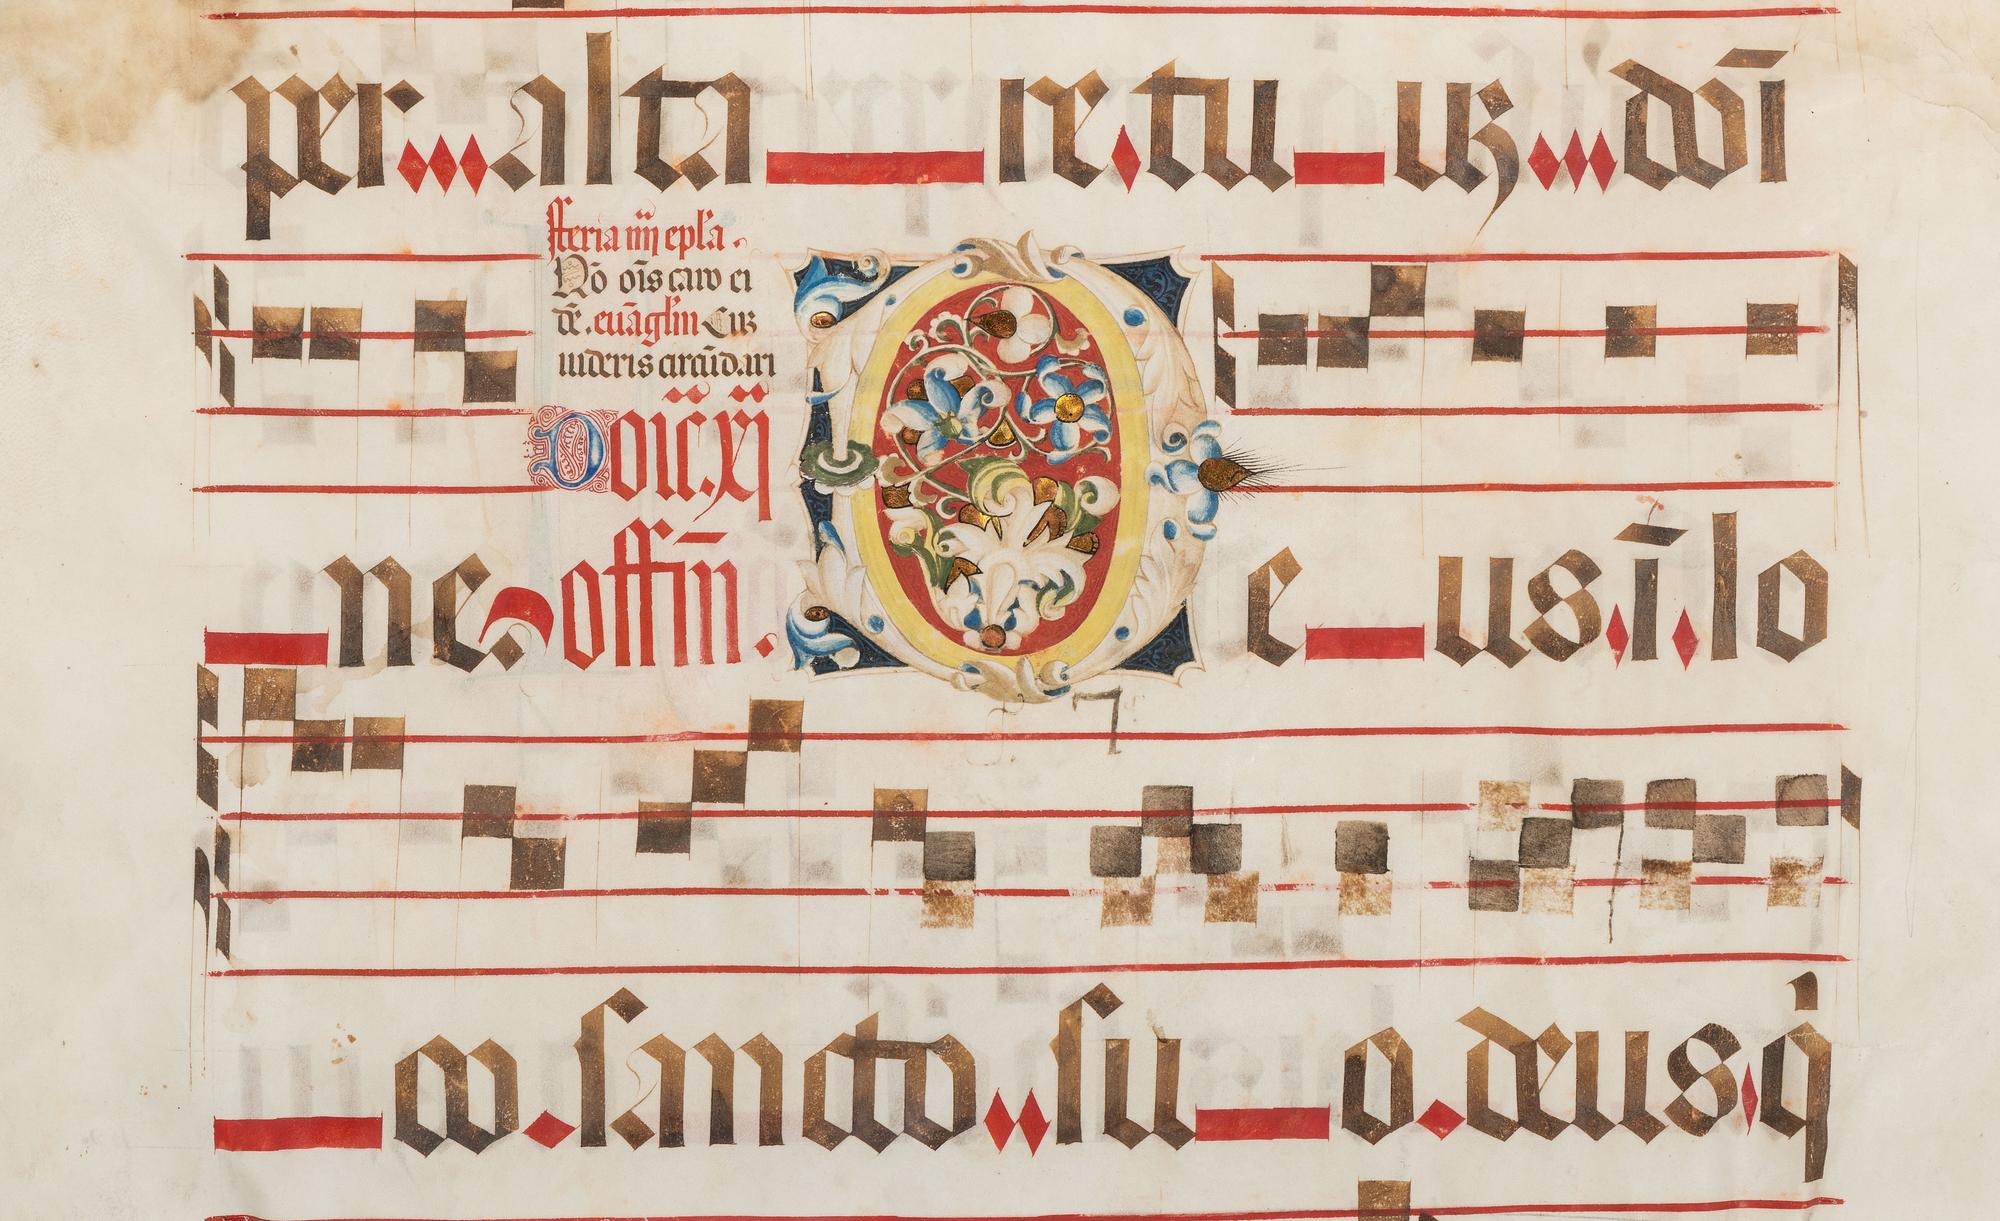 per alta re tu uꝫ dñi
fferia iiij epl'a .
Nõ oĩs caro ei
dẽ . euãgl'm Cuꝫ
uideris circũdari
Doĩc. xj
ne offm̃ . Deus ĩ lo
co sancto su o deus q̇